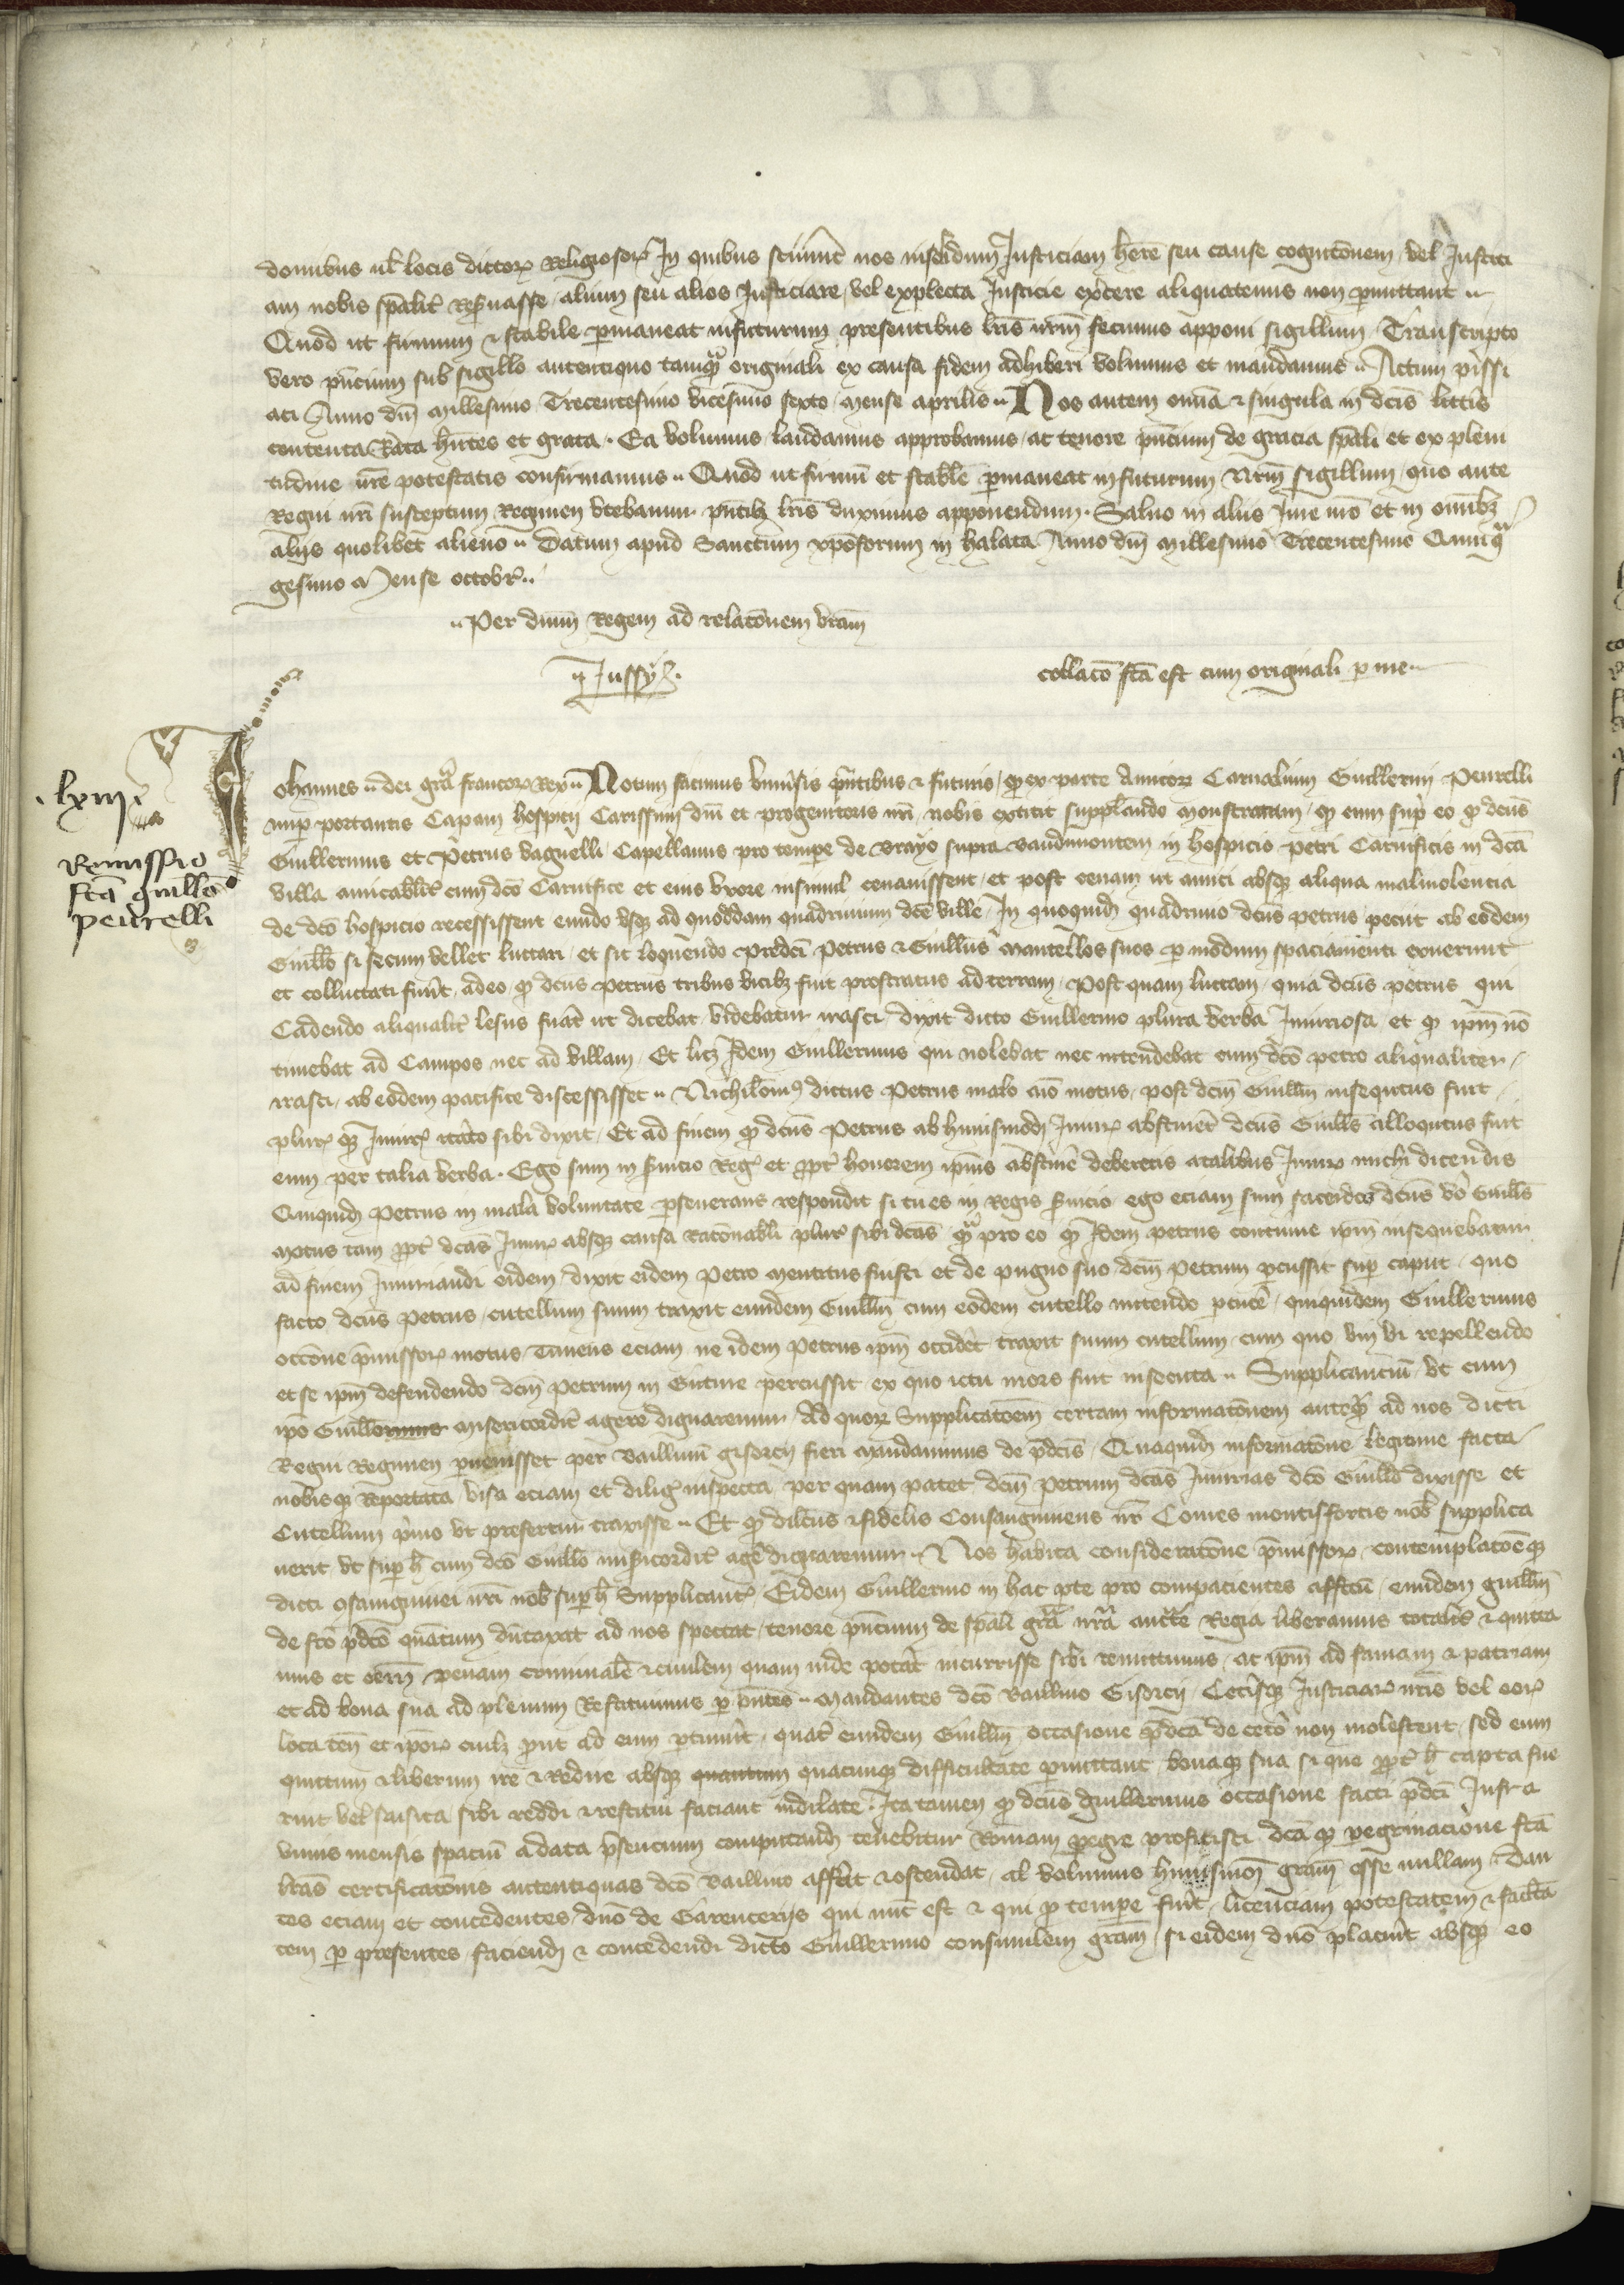 domibus vel locis dictorum Religiosorum In quibus sciverint nos insolidum Justiciam habere seu cause cognitionem vel Justici
am nobis specialiter Reservasse alium seu alios Justiciare vel explecta Justicie exercere aliquatenus non permittant
Quod ut firmum et stabile permaneat infuturum presentibus litteris nostrum fecimus apponi sigillum Transcripto
vero presencium sub sigillo autentiquo tamquam originali ex causa fidem adhiberi volumus et mandamus Actum
Anno domini Millesimo Trecentesimo vicesimo sexto mense aprilis Nos autem omnia et singula in dictis litteris
contenta Rata habentes et grata Ea volumus laudamus approbamus ac tenore presencium de gracia speciali et ex pleni
tudine nostre potestatis confirmamus Quod ut firmum et stabile permaneat infuturum Nostrum sigillum quo ante
Regni nostri susceptum Regimen utebamur presentibus litteris duximus apponendum Salvo in aliis Jure nostro et in omnibus
aliis quolibet alieno Datum apud Sanctum xpoforum in halata Anno domini Millesimo Trecentesimo Quinqua
gesimo Mense octobris
Per dominum Regem ad relationem vestram
Jussy
collatio facta est cum originali per me
lxiiija
Remissio
facta guillermo
peurelli
Johannes dei gratia francorum Rex Notum facimus universis presentibus et futuris quod ex parte Amicorum Carnalium Guillermi Peurelli
nuper portantis Capam hospicii Carissimi domini et progenitoris nostri nobis extitit supplicando monstratum quod cum super eo quod dictus
Guillermus et Petrus vaguelli Capellanus pro tempore de vrayo supra vaudimontem in hospicio petri Carnificis in dicta
villa amicabiliter cum dicto Carnifice et eius uxore insimul cenavissent et post cenam ut amici absque aliqua malivolencia
de dicto hospicio recessissent eundo usque ad quoddam quadrivium dicte ville In quoquidem quadrivio dictus petrus peciit ab eodem
Guillermo si secum vellet luctari et sic loquendo predicti Petrus et Guillermus mantellos suos per modum spaciamenti exuerunt
et colluctati fuerunt adeo quod dictus Petrus tribus vicibus fuit prostratus ad terram Post quam luctam quia dictus petrus qui
Cadendo aliqualiter lesus fuerat ut dicebat videbatur irasci dixit dicto Guillermo plura verba Injuriosa et quod ipsum non
timebat ad Campos nec ad villam Et licet Idem Guillermus qui nolebat nec intendebat cum dicto petro aliqualiter
irasci ab eodem pacifice discessisset Nichilominus dictus Petrus malo animo motus post dictum Guillermum insequtus fuit
plures que Injurias iterato sibi dixit Et ad finem quod dictus Petrus ab huiusmodi Injuriis abstineret dictus Guillermus alloqutus fuit
eum per talia verba Ego sum in servicio Regis et propter honorem ipsius abstinere deberetis a talibus Injuriis michi dicendis
Quiquidem Petrus in mala voluntate perseverans respondit si tu es in Regis servicio ego eciam sum sacerdos dictus vero Guillermus
motus tam propter dictas Injurias absque causa rationabili pluries sibi dictas quam pro eo quod Idem petrus continue ipsum insequebatur
ad finem Injuriandi eidem dixit eidem Petro mentitus fuisti et de pugno suo dictum Petrum percussit super caput quo
facto dictus Petrus cutellum suum traxit eumdem Guillermum cum eodem cutello nitendo percutere quiquidem Guillermus
occasione premissorum motus Timens eciam ne idem Petrus ipsum occideret traxit suum cutellum cum quo vim vi repellendo
et se ipsum defendendo dictum Petrum in Guture percussit ex quo ictu mors fuit insecuta Supplicancium ut cum
ipso Guillermo misericorditer agere dignaremur Ad quorum Supplicationem certam informationem antequam ad nos dicti
Regni Regimen pervenisset per Baillivum gisorcii fieri mandavimus de predictis Quaquidem informatione legitime facta
nobisque Reportata visa eciam et diligenter inspecta per quam patet dictum Petrum dictas Injurias dicto Guillermo dixisse et
Cutellum primo ut prefertur traxisse Et quod dilectus et fidelis Consanguineus noster Comes montisfortis nobis supplica
verit ut super hoc cum dicto Guillermo misericorditer agere dignaremur Nos habita consideratione premissorum contemplationeque
dicti consanguinei nostri nobis super hoc Supplicantis Eidem Guillermo in hac parte pro compacientes affectu eumdem guillermum
de facto predicto quantum duntaxat ad nos spectat tenore presencium de speciali gracia nostra auctoritate Regia liberamus totaliter et quitta
mus et omnem penam criminalem et civilem quam inde poterat incurrisse sibi remittimus ac ipsum ad famam et patriam
et ad bona sua ad plenum Restituimus per presentes Mandantes dicto Baillivo Gisorcii Ceterisque Justiciariis nostris vel eorum
loca tenentibus et ipsorum cuilibet prout ad eum pertinuerit quatenus eumdem Guillermum occasione predicta de cetero non molestent sed eum
quittum et liberum ire et Redire absque quantum quacunque difficultate permittant bonaque sua si que propter hoc capta fue
rint vel saisita sibi reddi et restitui faciant indilate Ita tamen quod dictus guillermus occasione facti predicti Infra
unius mensis spacium a data presencium computandum tenebitur Romam peregre proficisci dictaque peregrinacione facta
litteras certificationis autentiquas dicto Baillivo afferat et ostendat al volumus huiusmodi graciam esse nullam Dan
tes eciam et concedentes domino de Garenceriis qui nunc est et qui pro tempore fuerit licenciam potestatem et faculta
tem per presentes faciendi et concedendi dicto Guillermo consimilem graciam si eidem domino placuerit absque eo